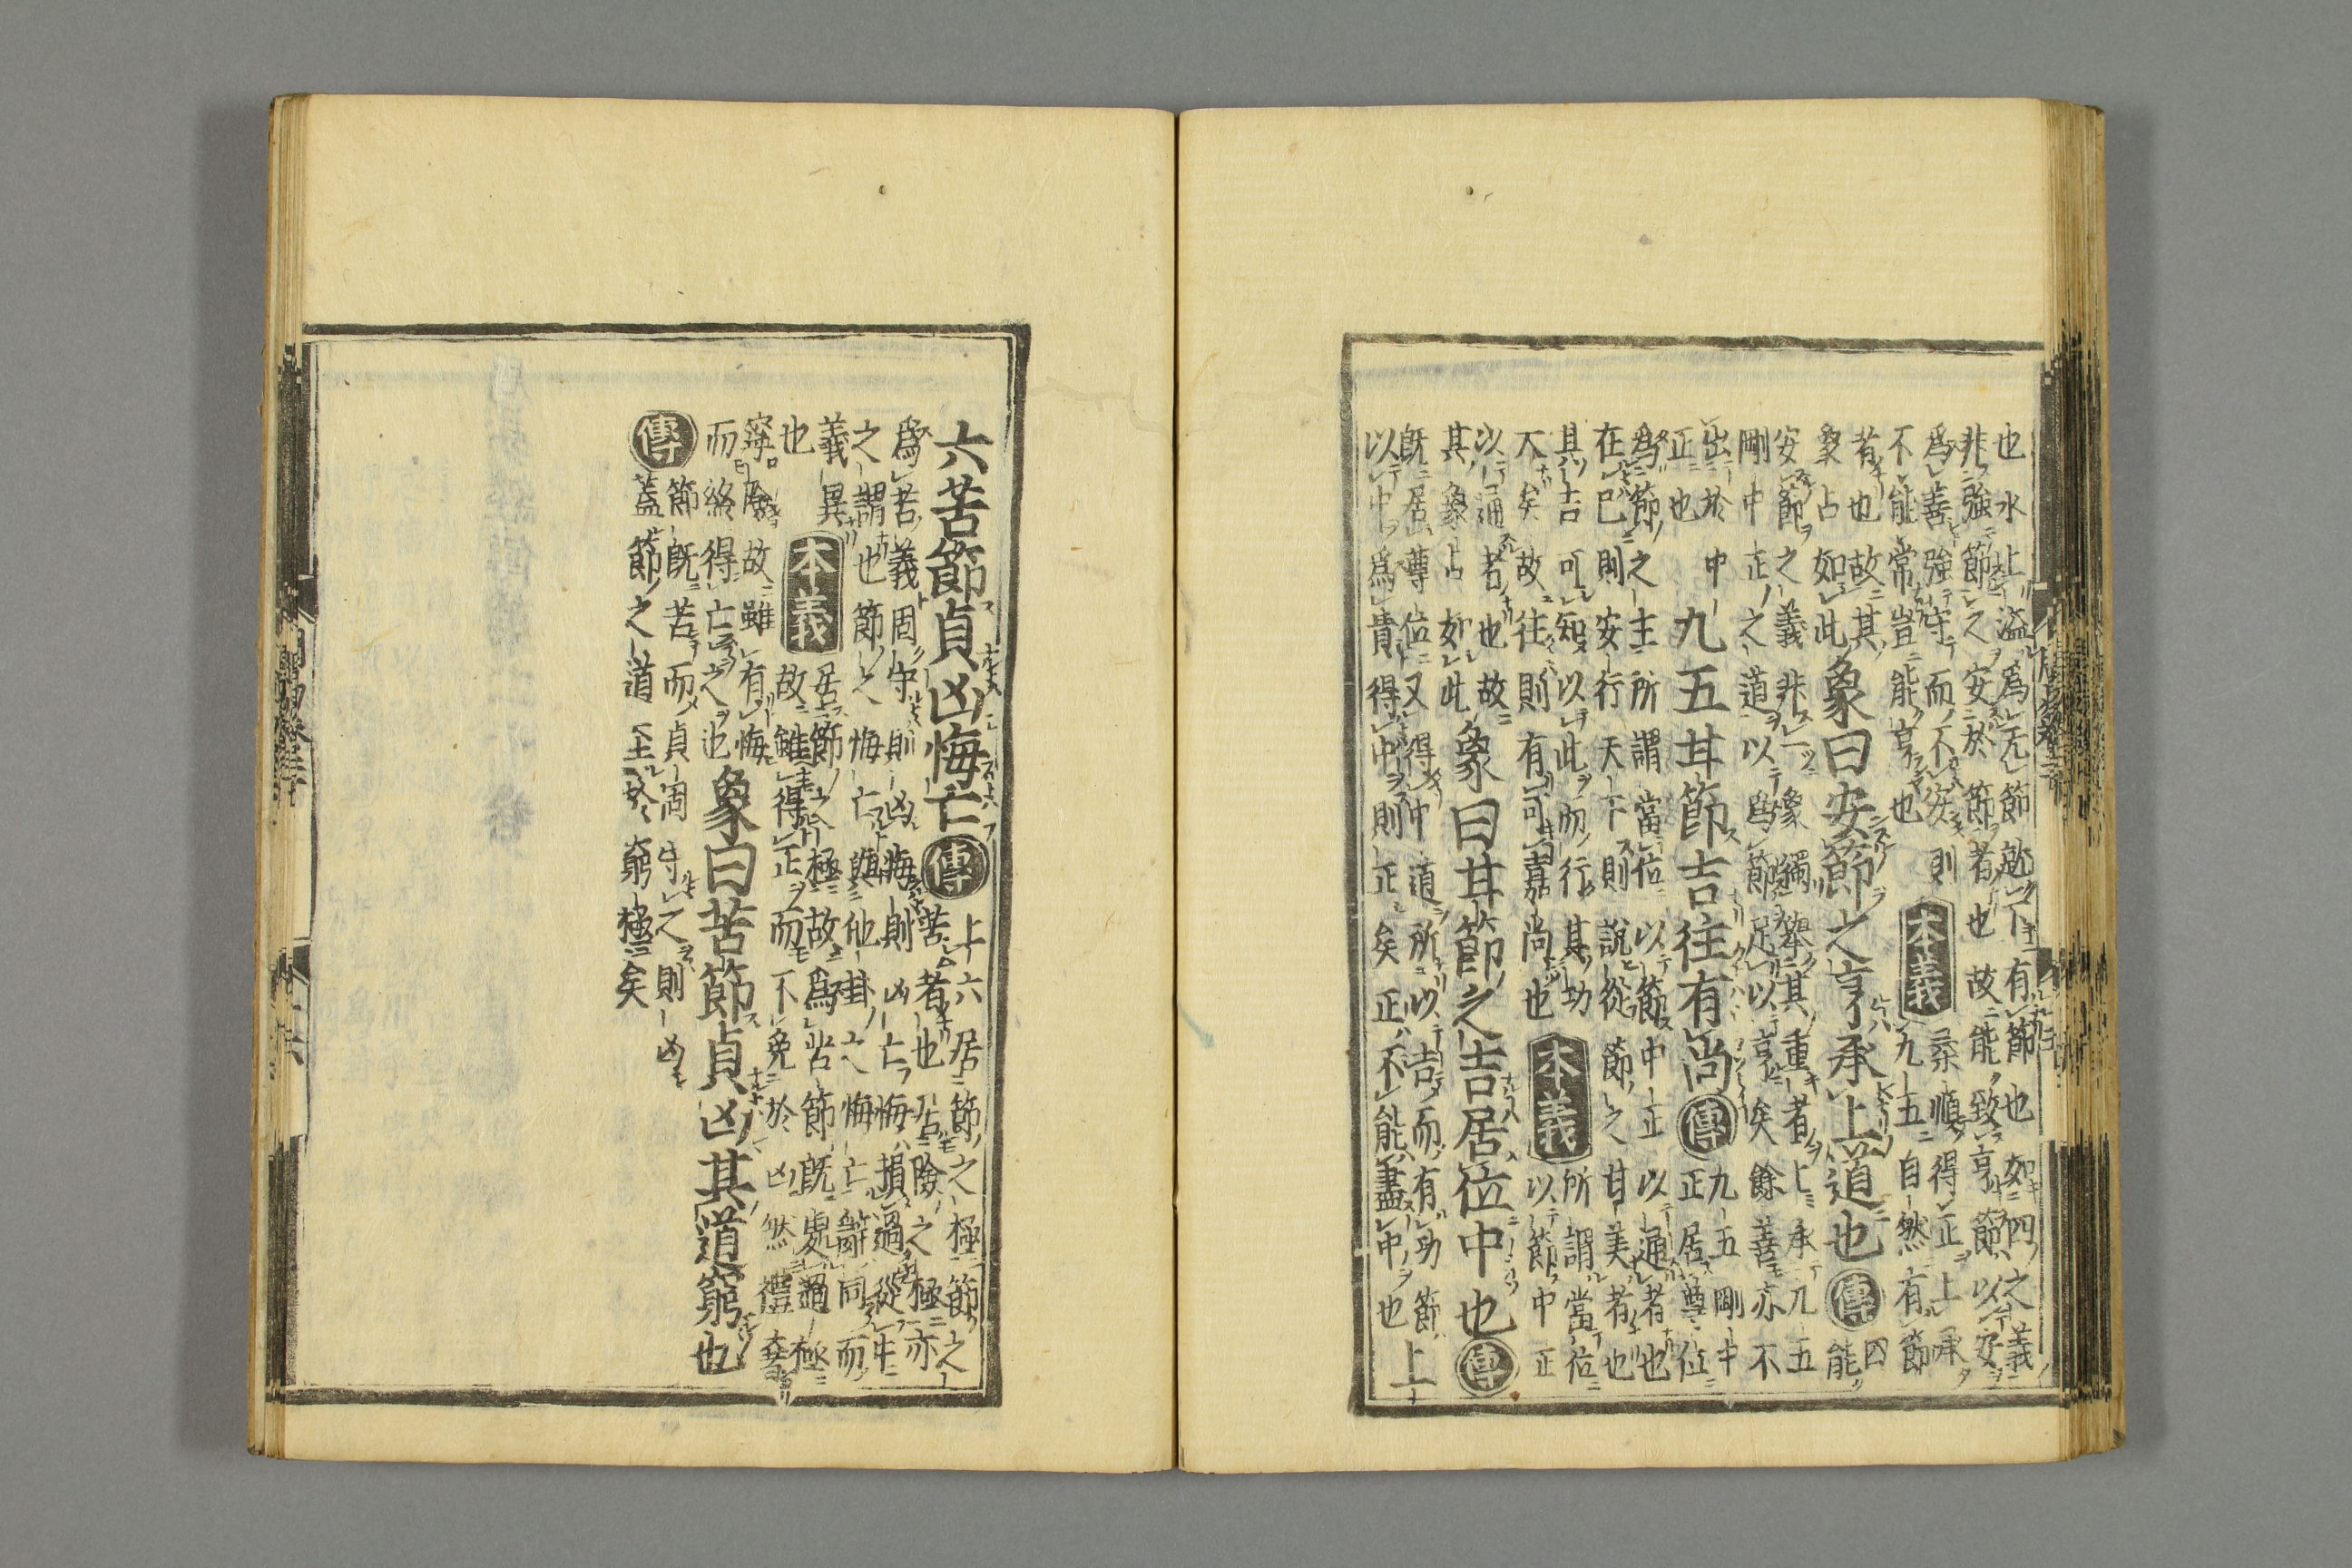 也水上溢爲无節就下有節也如四之義
非強節之安於節者也故能致亨節以安
爲善強守而不安則
不能常豈能亨也
本義
柔順得正上承
九五自然有節
者也故其
象占如此
象曰安節之亨承上道也
傳
四
能
安節之義非一象獨舉其重者上承九五
剛中正之道以爲節足以亨矣餘善亦不
出於中
正也
九五甘節吉往有尚
傳
九五剛中
正居尊位
爲節之主所謂當位以節中正以通者也
在己則安行天下則說從節之甘美者也
其吉可知以此而行其功
大矣故往則有可嘉尚也
本義
所謂當位
以節中正
以通者也故
其象占如此
象曰甘節之吉居位中也
傳
既居尊位又得中道所以吉而有功節
以中爲貴得中則正矣正不能盡中也
上
六苦節貞凶悔亡
傳
上六居節之極節之
苦者也居險之極亦
爲苦義固守則凶悔則凶亡悔損過從中
之謂也節之悔亡與他卦之悔亡辭同而
義異
也
本義
居節之極故爲苦節既處過極
故雖得正而不免於凶然禮奢
寧儉故雖有悔
而終得亡之也
象曰苦節貞凶其道窮也
傳
節既苦而貞固守之則凶
蓋節之道至於窮極矣